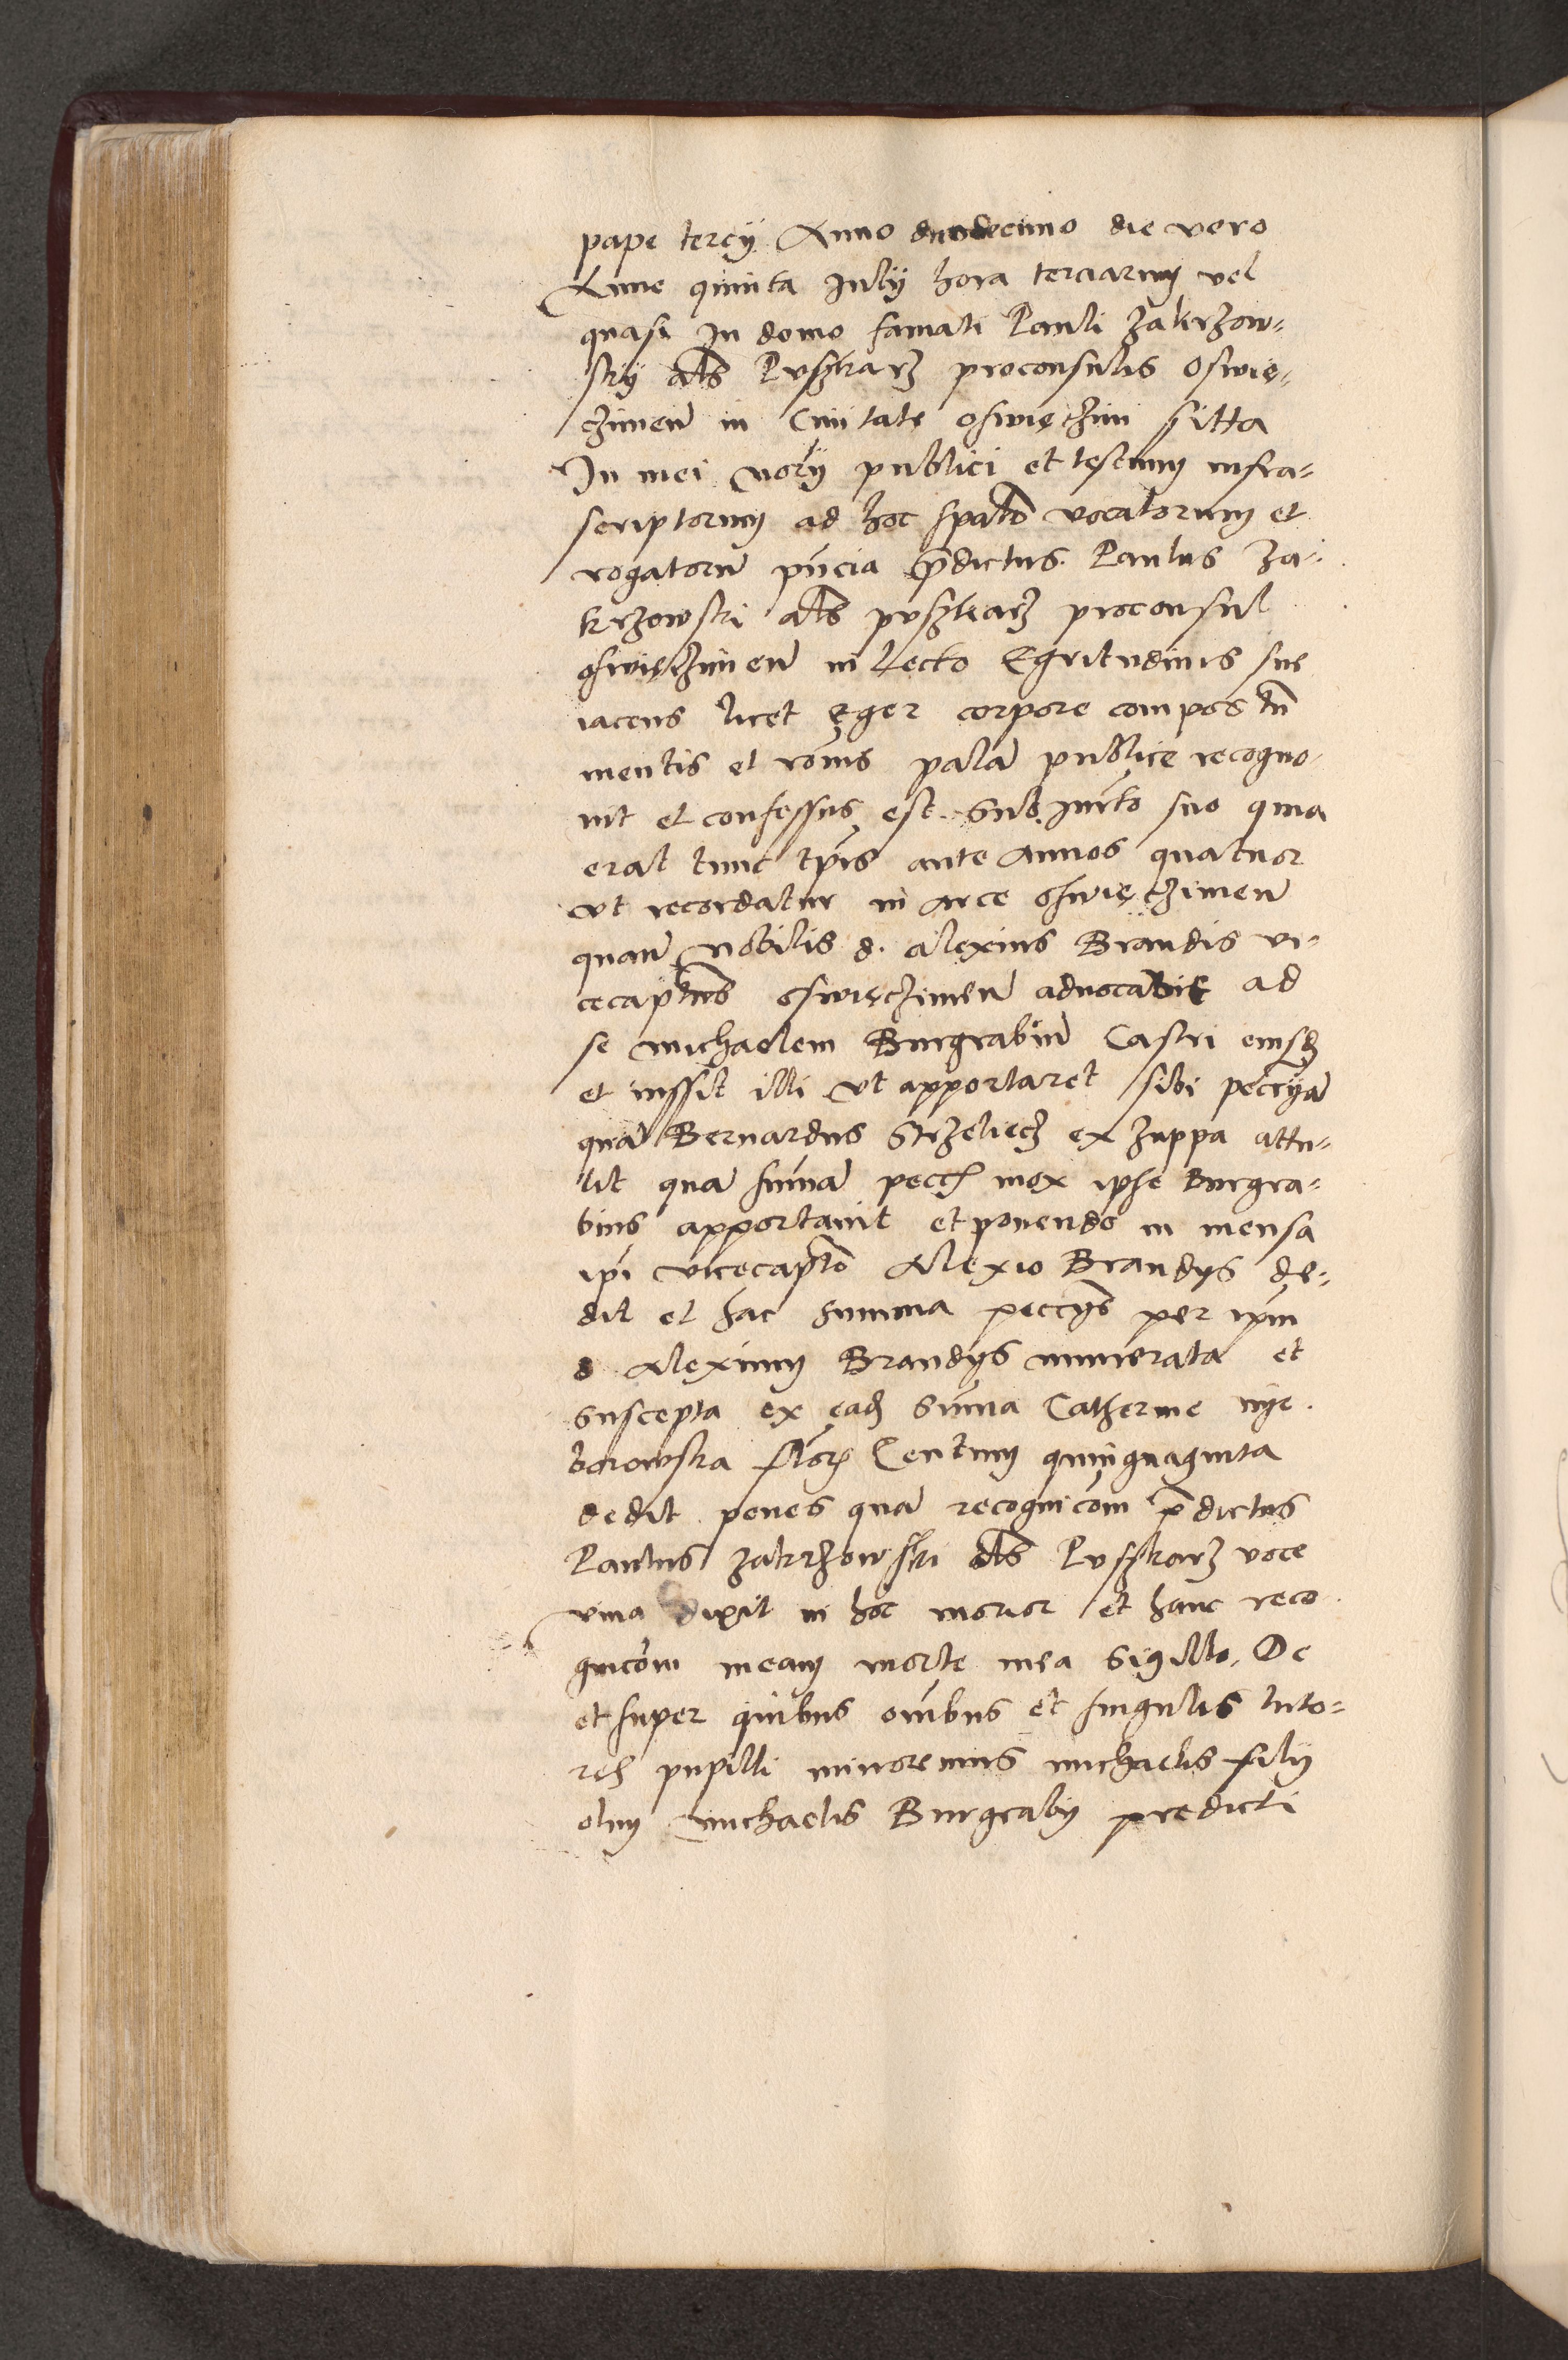 pape tercÿ Anno duodecimo die vero
Lune quinta Julÿ hora terciarum vel
quasi in domo famati Pauli Zakrzow-
skÿ als Puszkarz proconsulis Oswię-
czimen̄ in Ciuitate Oswięczim sitta
In mei notÿ publici et testium infra-
scriptorum ad hoc spālr vocatorum et
rogatorū pn̄cia p̄dictus Paulus Za-
krzowski als puszkarz proconsul
osswięczimen̄ in lecto Egritudinis sue
iacens licet eger corpore compos tn̄
mentis et rōnis palā publice recogno-
uit et confessus est Sub Jurto suo quia
erat tunc tp̄is ante annos quatuor
vt recordatur in arce osswięczimen̄
quan̄ nobilis d. alexius Brandis vi-
cecaptus osswięczimen̄ aduocabit ad
se michaelem Burgrabiū Castri eiusdē
et iussit illi vt apportaret sibi peccÿā
quā Bernardus Strzeliecz ex zuppa attu-
lit quā sum̄ā pecc mox ipse Burgra-
bius apportauit et ponendo in mensa
ip̄i vicecapto Alexio Brandÿs de-
dit et hac summa peccÿs per ip̄m
d Alexium Brandÿs numerata et
suscepta ex eadē sum̄a Catherine nÿe-
borowska flor Centum quinquaginta
dedit penes quā recognicōm p̄dictus
Paulus Zakrzowski als Puszkarz voce
viua dixit in hoc morior et hanc reco
gnicōm meam morte mea sigillo. De
et super quibus om̄ibus et singulis tuto-
res pupilli minorennis michaelis filÿ
olim michaelis Burgrabÿ predicti